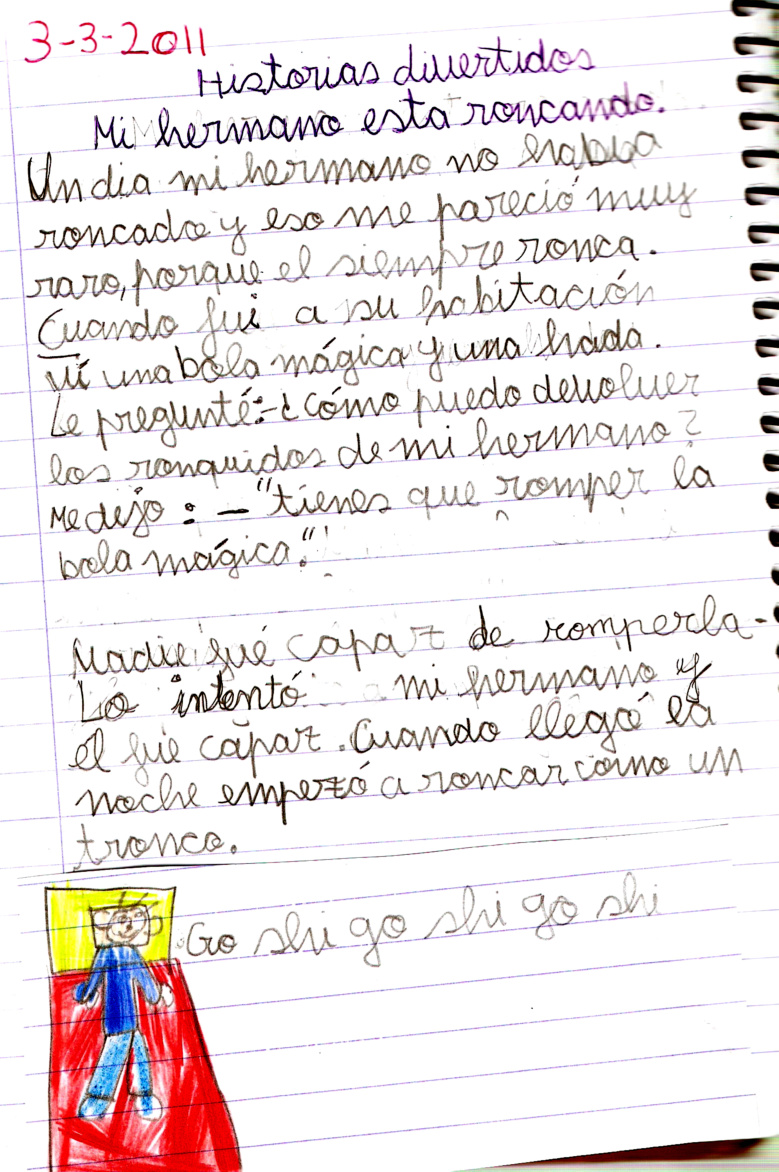 3-3-2011
Historias divertidas
Mi hermano esta roncando.
Un dia mi hermano no había
roncado y eso me pareció muy
raro, porque el siempre ronca.
Cuando fui a su habitación
ví una bola mágica y una hada.
Le pregunté:-¿cómo puedo devolver
los ronquidos de mi hermano?
Me dijo: -"tienes que romper la
bola mágica."
Nadie fué capaz de romperla.
Lo intentó mi hermano y
el fue capaz. Cuando llegó la
noche empezó a roncar como un
tronco.
Go shi go shi go shi